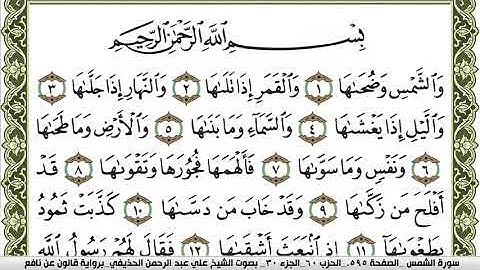 بِسْمِ اللَّهِ الرَّحْمَٰنِ الرَّحِيمِ
وَالشَّمْسِ وَضُحَاهَا ١ وَالْقَمَرِ إِذَا تَلَاهَا ٢ وَالنَّهَارِ إِذَا جَلَّاهَا ٣
وَالَّيْلِ إِذَا يَغْشَاهَا ٤ وَالسَّمَآءِ وَمَا بَنَاهَا ٥ وَالْأَرْضِ وَمَا طَحَاهَا
٦ وَنَفْسٍ وَمَا سَوَّاهَا ٧ فَأَلْهَمَهَا فُجُورَهَا وَتَقْوَاهَا ٨ قَدْ
أَفْلَحَ مَن زَكَّاهَا ٩ وَقَدْ خَابَ مَن دَسَّاهَا ١٠ كَذَّبَتْ ثَمُودُ
بِطَغْوَاهَا ١١ إِذِ انۢبَعَثَ أَشْقَاهَا ١٢ فَقَالَ لَهُمْ رَسُولُ اللَّهِ
سورة الشمس _الصفحة ٥٩٥_ الحزب ٦٠_الجزء ٣٠_ بصوت الشيخ علي عبد الرحمن الحذيفي_برواية قالون عن نافع